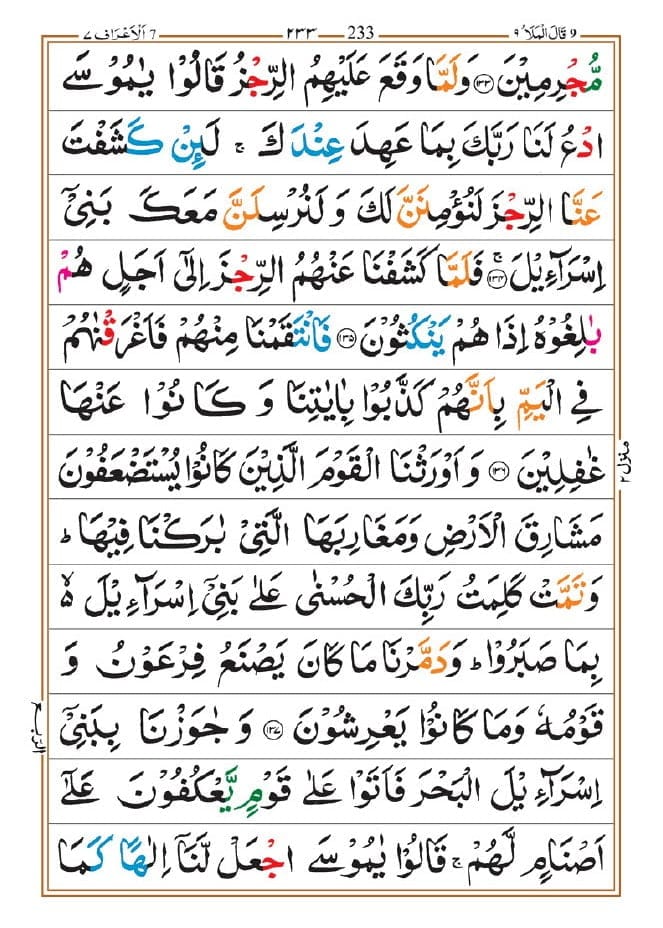 قَالَ الْمَلَاُ ٩ 9 233 ٢٣٣ اَلْاَعْرَاف ٧ 7
مُّجْرِمِيْنَ ﴿۱۳۳﴾ وَلَمَّا وَقَعَ عَلَيْهِمُ الرِّجْزُ قَالُوْا يٰمُوْسَى
ادْعُ لَنَا رَبَّكَ بِمَا عَهِدَ عِنْدَكَ ۚ لَئِنْ كَشَفْتَ
عَنَّا الرِّجْزَ لَنُؤْمِنَنَّ لَكَ وَلَنُرْسِلَنَّ مَعَكَ بَنِيْۤ
اِسْرَآءِيْلَ ۚ﴿۱۳۴﴾ فَلَمَّا كَشَفْنَا عَنْهُمُ الرِّجْزَ اِلٰۤى اَجَلٍ هُمْ
بٰلِغُوْهُ اِذَا هُمْ يَنْكُثُوْنَ ﴿۱۳۵﴾ فَانْتَقَمْنَا مِنْهُمْ فَاَغْرَقْنٰهُمْ
فِي الْيَمِّ بِاَنَّهُمْ كَذَّبُوْا بِاٰيٰتِنَا وَكَانُوْا عَنْهَا
غٰفِلِيْنَ ﴿۱۳۶﴾ وَاَوْرَثْنَا الْقَوْمَ الَّذِيْنَ كَانُوْا يُسْتَضْعَفُوْنَ
مَشَارِقَ الْاَرْضِ وَمَغَارِبَهَا الَّتِيْ بٰرَكْنَا فِيْهَا ؕ
وَتَمَّتْ كَلِمَتُ رَبِّكَ الْحُسْنٰى عَلٰى بَنِيْۤ اِسْرَآءِيْلَ ۙ۬
بِمَا صَبَرُوْا ؕ وَدَمَّرْنَا مَا كَانَ يَصْنَعُ فِرْعَوْنُ وَ
قَوْمُهٗ وَمَا كَانُوْا يَعْرِشُوْنَ ﴿۱۳۷﴾ وَجٰوَزْنَا بِبَنِيْۤ
اِسْرَآءِيْلَ الْبَحْرَ فَاَتَوْا عَلٰى قَوْمٍ يَّعْكُفُوْنَ عَلٰۤى
اَصْنَامٍ لَّهُمْ ۚ قَالُوْا يٰمُوْسَى اجْعَلْ لَّنَاۤ اِلٰهًا كَمَا
منزل ٢
الربع